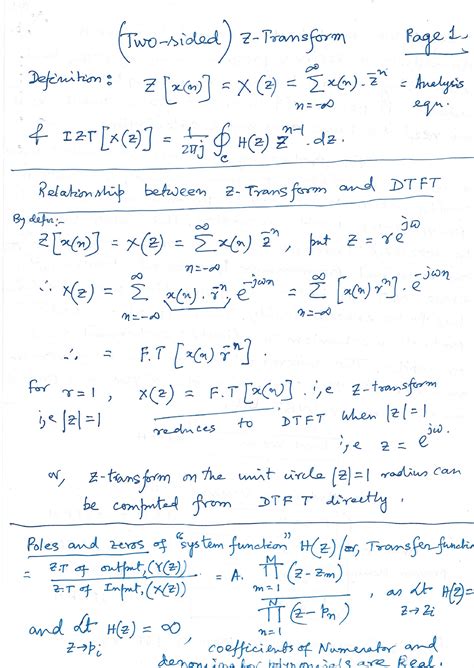 (Two-sided) Z-Transform Page 1
Definition: Z[x(n)] = X(z) = ∞Σn=-∞ x(n).z^-n = Analysis eqn.
& IZT[X(z)] = 1/2πj ∮c H(z) z^n-1.dz.
Relationship between z-Transform and DTFT
By defn:-
Z[x(n)] = X(z) = ∞Σn=-∞ x(n) z^-n, put z = re^jω
∴ X(z) = ∞Σn=-∞ x(n).r^-n. e^-jωn = ∞Σn=-∞ [x(n) r^-n]. e^-jωn
∴ = F.T [x(n) r^-n].
For r=1, X(z) = F.T[x(n)]. i,e z-transform
i,e |z|=1 reduces to DTFT when |z|=1
i,e z = e^jω.
or, z-transform on the unit circle |z|=1 radius can
be computed from DTFT directly.
Poles and zeros of "system function" H(z)/or, Transfer function
= Z.T of output,(Y(z)) / Z.T of Input,(X(z)) = A. M∏m=1 (z-zm) / N∏n=1 (z-pn), as Lt z→zi H(z)=
and Lt z→pi H(z) = ∞, coefficients of Numerator and
denominator polynomials are Real.